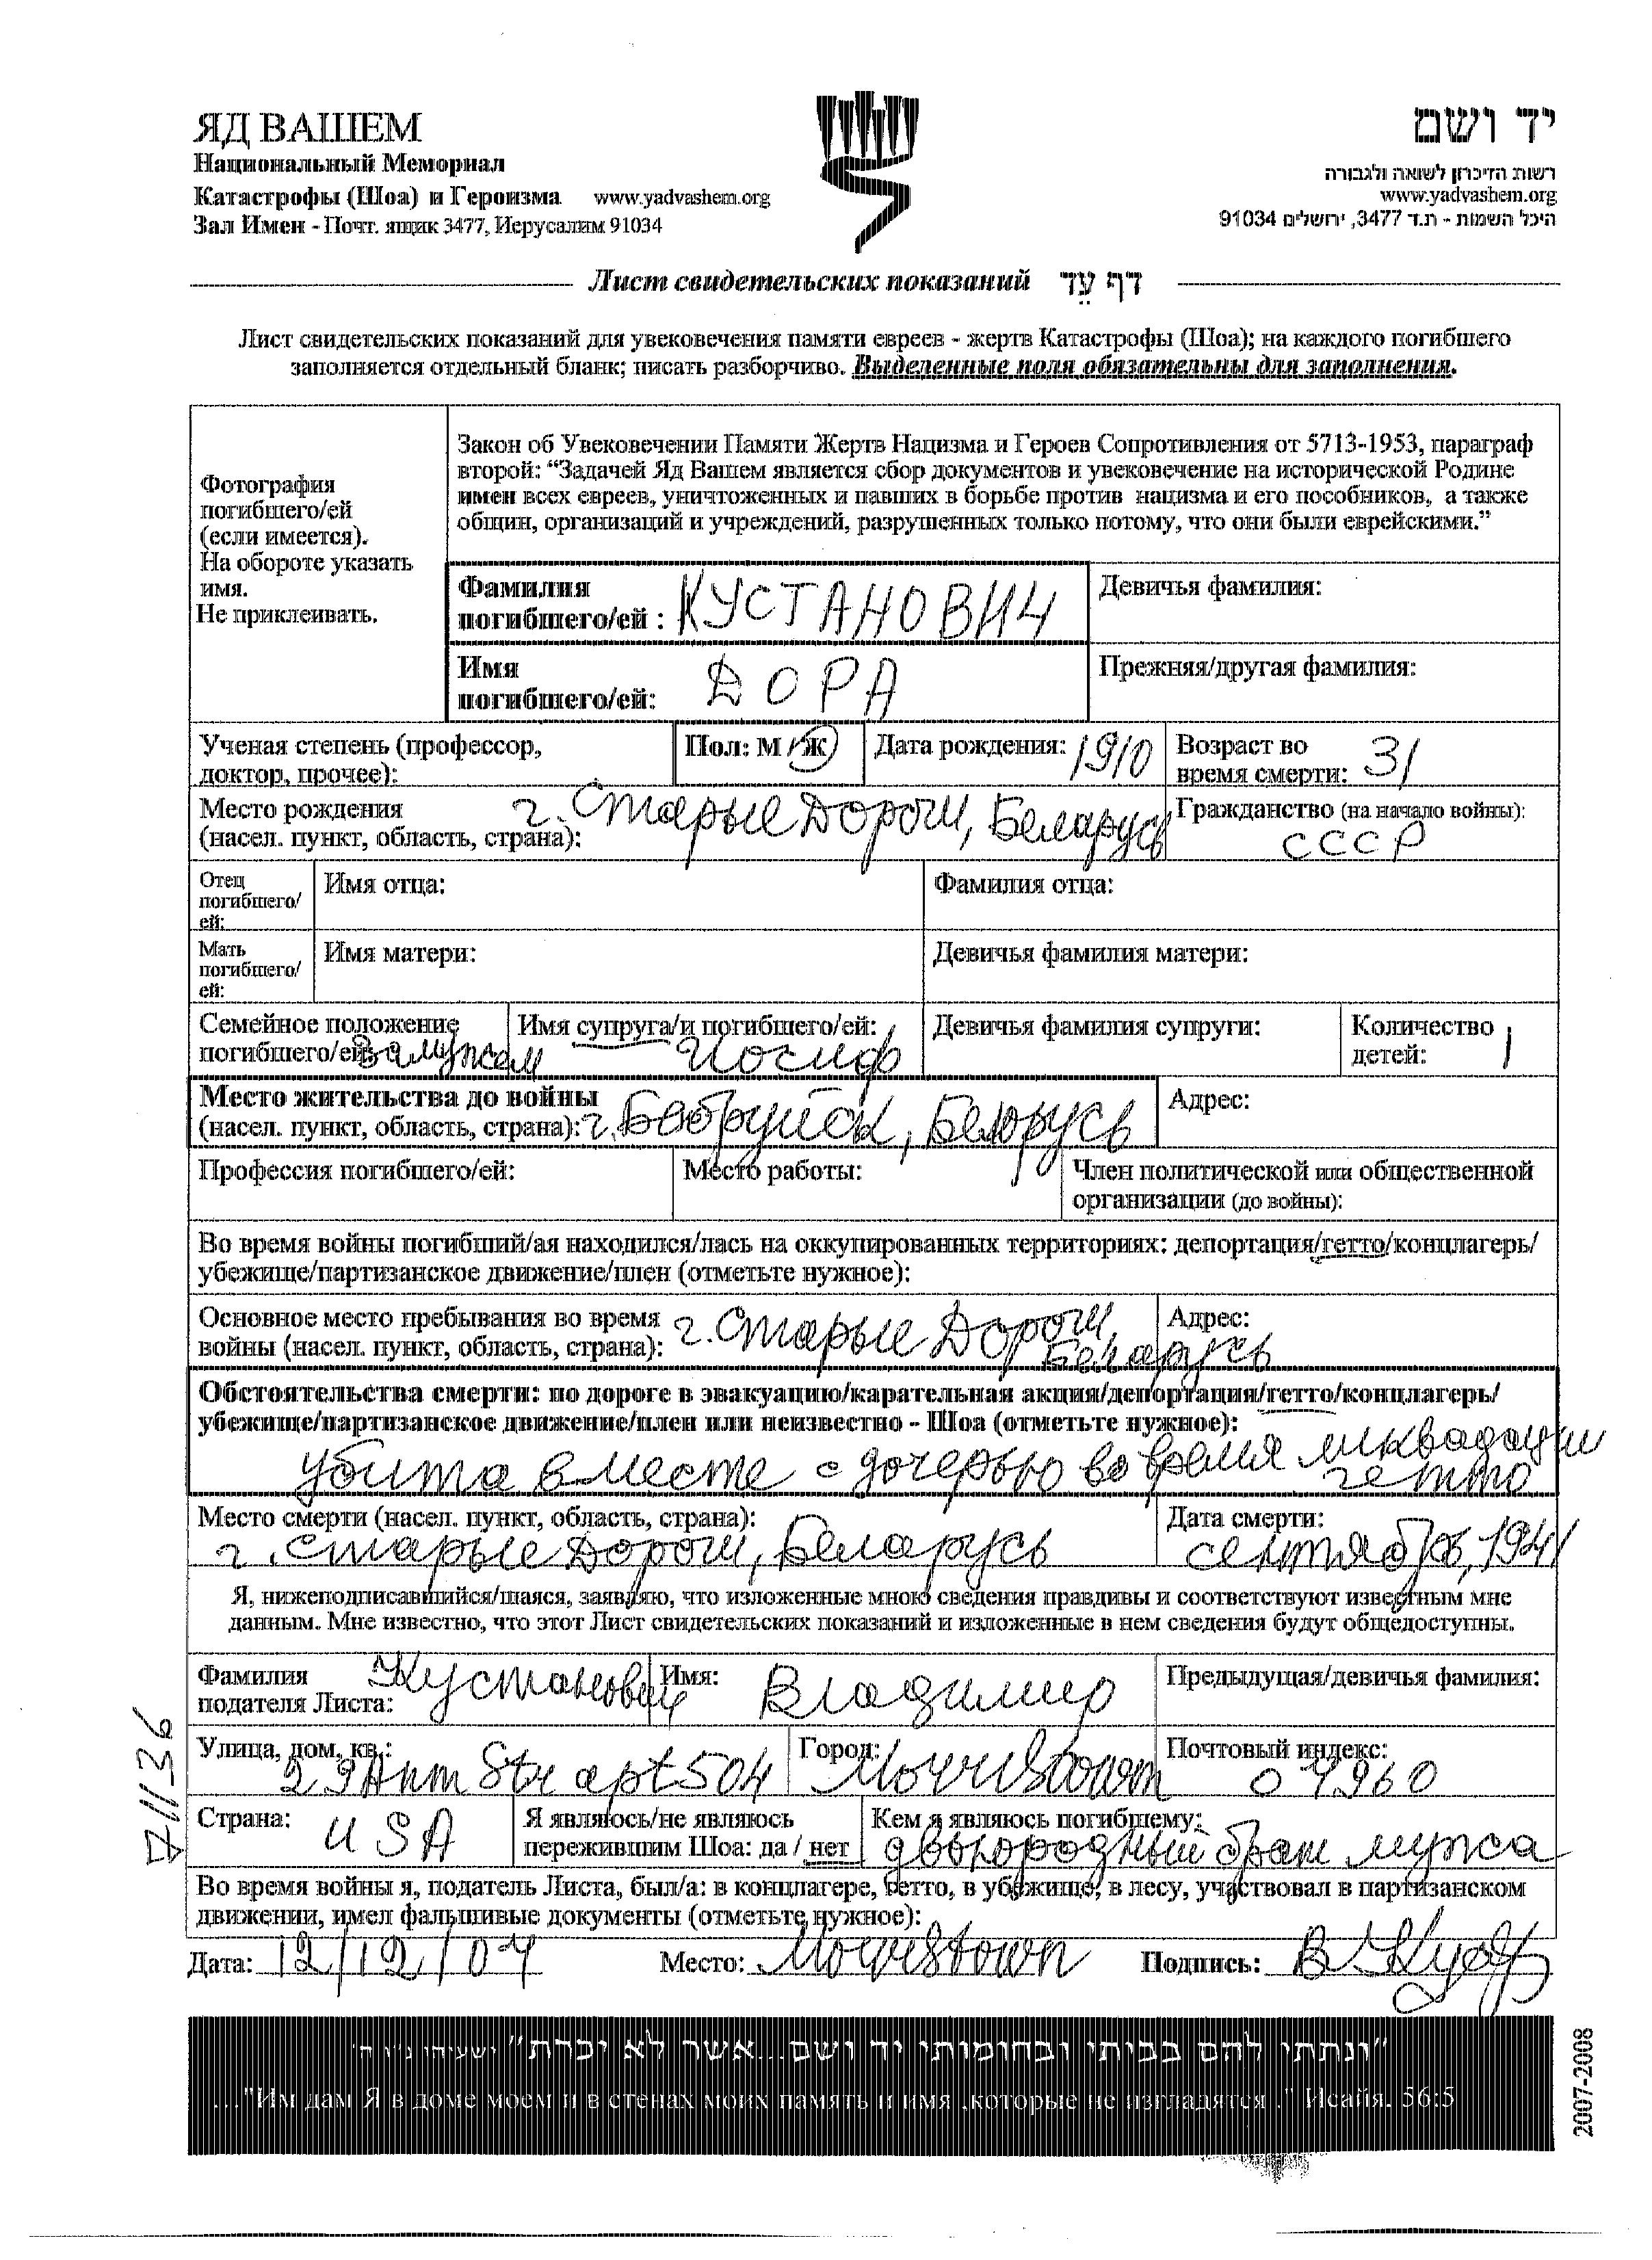 ЯД ВАШЕМ
Национальный Мемориал
Катастрофы (Шоа) и Героизма www.yadvashem.org
Зал Имен - Почт. ящик 3477, Иерусалим 91034
יד ושם
רשות הזיכרון לשואה ולגבורה
www.yadvashem.org
היכל השמות - ת.ד 3477, ירושלים 91034
Лист свидетельских показаний דף עֵד
Лист свидетельских показаний для увековечения памяти евреев - жертв Катастрофы (Шоа); на каждого погибшего
заполняется отдельный бланк; писать разборчиво. Выделенные поля обязательны для заполнения.
Фотография
погибшего/ей
(если имеется).
На обороте указать
имя.
Не приклеивать.
Закон об Увековечении Памяти Жертв Нацизма и Героев Сопротивления от 5713-1953, параграф
второй: “Задачей Яд Вашем является сбор документов и увековечение на исторической Родине
имен всех евреев, уничтоженных и павших в борьбе против нацизма и его пособников, а также
общин, организаций и учреждений, разрушенных только потому, что они были еврейскими.”
Фамилия
погибшего/ей : КУСТАНОВИЧ
Девичья фамилия:
Имя
погибшего/ей: ДОРА
Прежняя/другая фамилия:
Ученая степень (профессор,
доктор, прочее):
Пол: М / Ж
Дата рождения: 1910
Возраст во
время смерти: 31
Место рождения
(насел. пункт, область, страна): г. Старые Дороги, Беларусь
Гражданство (на начало войны):
СССР
Отец
погибшего/
ей:
Имя отца:
Фамилия отца:
Мать
погибшего/
ей:
Имя матери:
Девичья фамилия матери:
Семейное положение
погибшего/ей: замужем
Имя супруга/и погибшего/ей:
Иосиф
Девичья фамилия супруги:
Количество
детей: 1
Место жительства до войны
(насел. пункт, область, страна): г. Бобруйск, Белорусь
Адрес:
Профессия погибшего/ей:
Место работы:
Член политической или общественной
организации (до войны):
Во время войны погибший/ая находился/лась на оккупированных территориях: депортация/гетто/концлагерь/
убежище/партизанское движение/плен (отметьте нужное):
Основное место пребывания во время
войны (насел. пункт, область, страна): г. Старые Дороги
Беларусь
Адрес:
Обстоятельства смерти: по дороге в эвакуацию/карательная акция/депортация/гетто/концлагерь/
убежище/партизанское движение/плен или неизвестно - Шоа (отметьте нужное):
убита вместе с дочерью во время ликвадации
гетто
Место смерти (насел. пункт, область, страна):
г. Старые Дороги, Беларусь
Дата смерти:
сентябрь, 1941
Я, нижеподписавшийся/шаяся, заявляю, что изложенные мною сведения правдивы и соответствуют известным мне
данным. Мне известно, что этот Лист свидетельских показаний и изложенные в нем сведения будут общедоступны.
Фамилия
подателя Листа: Кустанович
Имя: Владимир
Предыдущая/девичья фамилия:
Улица, дом, кв.:
29 Ann Str apt 504
Город: Morristown
Почтовый индекс:
07960
Страна: USA
Я являюсь/не являюсь
пережившим Шоа: да / нет
Кем я являюсь погибшему:
двоюродный брат мужа
Во время войны я, податель Листа, был/а: в концлагере, гетто, в убежище, в лесу, участвовал в партизанском
движении, имел фальшивые документы (отметьте нужное):
Дата: 12/12/07 Место: Morristown Подпись:
"ונתתי להם בביתי ובחומותי יד ושם...אשר לא יכרת" ישעיהו נ"ו ה'
..."Им дам Я в доме моем и в стенах моих память и имя ,которые не изгладятся ." Исайя. 56:5
2007-2008